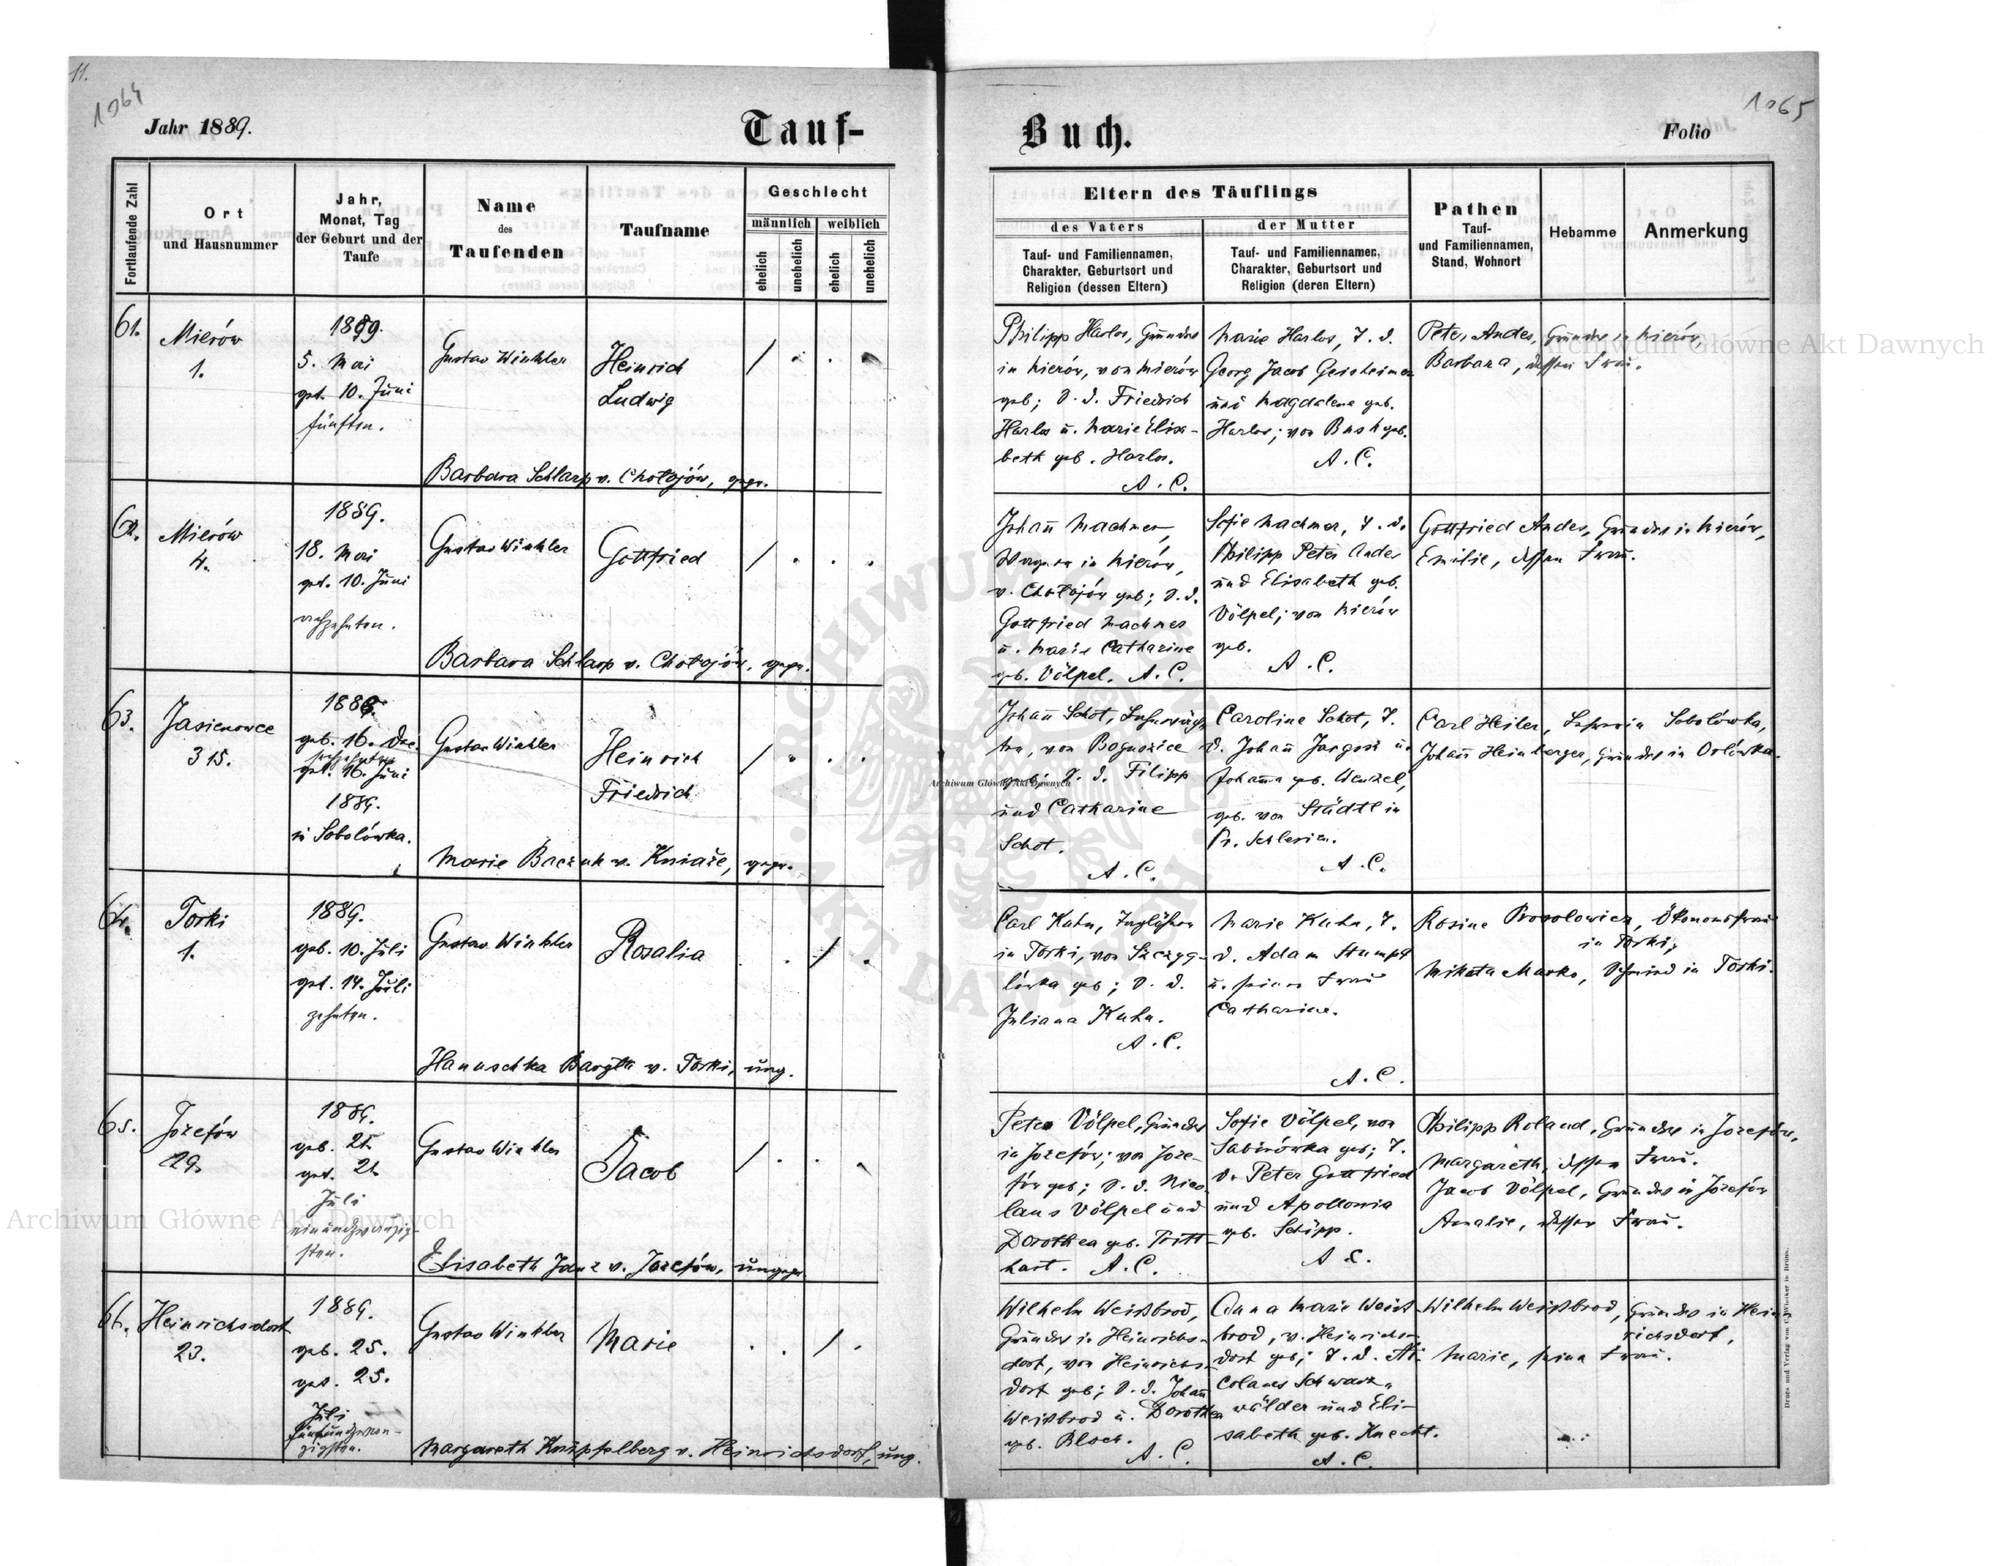 11.
1064
1065
Jahr 1889.
Tauf-
Buch.
Folio
Fortlaufende Zahl
Ort
und Hausnummer
Jahr,
Monat, Tag
der Geburt und der
Taufe
Name
des
Taufenden
Taufname
Geschlecht
männlich
weiblich
ehelich
unehelich
ehelich
unehelich
Eltern des Täuflings
des Vaters
der Mutter
Tauf- und Familiennamen,
Charakter, Geburtsort und
Religion (dessen Eltern)
Tauf- und Familiennamen,
Charakter, Geburtsort und
Religion (deren Eltern)
Pathen
Tauf-
und Familiennamen,
Stand, Wohnort
Hebamme
Anmerkung
61.
Mierów
1.
1889.
5. Mai
get. 10. Juni
fünften.
Gustav Winkler
Heinrich
Ludwig
Barbara Schlarp v. Chołojów, gepr.
Philipp Harlos, Grundws
in Mierów, von Mierów
geb; S. d. Friedrich
Harlos u. Marie Elisa-
beth geb. Harlos.
A. C.
Marie Harlos, T. d.
Georg Jacob Geisheimer
und Magdalena geb.
Harlos; von Busk geb.
A. C.
Peter Andes, Grundws in Mierów,
Barbara, dessen Frau.
62.
Mierów
4.
1889.
18. Mai
get. 10. Juni
achzehnten.
Gustav Winkler
Gottfried
Barbara Schlarp v. Chołojów, gepr.
Johann Machmer,
Wagner in Mierów,
v. Chołojów geb; S. d.
Gottfried Machmer
u. Marie Catharine
geb. Völpel. A. C.
Sofie Machmer, T. d.
Philipp Peter Andes
und Elisabeth geb.
Völpel; von Mierów
geb.
A. C.
Gottfried Andes, Grundws in Mierów,
Emilie, dessen Frau.
63.
Jasienowce
315.
1888.
geb. 16. Dec.
sechzehnten
get. 16. Juni
1889.
in Sobolówka.
Gustav Winkler
Heinrich
Friedrich
Marie Baczuk v. Kniaże, gepr.
Johann Schot,
von
geb; S. d. Filipp
und Catharine
Schot.
A. C.
Caroline Schot, T.
d. Johann Jargosz u.
Johanna geb. Wenzel,
geb. von Städtl in
Pr. Schlesien.
A. C.
Carl Heiler, in Sobolówka,
Johann Heinberger, Grundws in Orłówka.
64.
Torki
1.
1889.
geb. 10. Juli
get. 14. Juli
zehnten.
Gustav Winkler
Rosalia
Hanuschka v. Torki, ung.
Carl Kuhn, Taglöhner
in Torki, von Szczyg-
lówka geb; S. d.
Juliana Kuhn.
A. C.
Marie Kuhn, T.
d. Adam Stumpf
u. seiner Frau
Catharine.
A. C.
Rosine Ökonomsfrau
in Torki;
Mikita Marko, Schmied in Torki.
65.
Józefów
29.
1889.
geb. 21.
get. 21.
Juli
einundzwanzig-
sten.
Gustav Winkler
Jacob
Elisabeth Janz v. Józefów, ungepr
Peter Völpel, Grundws
in Józefów; von Józe-
fów geb; S. d. Nico-
laus Völpel und
Dorothea geb. Tritt-
hart. A. C.
Sofie Völpel, von
Sabinówka geb; T.
d. Peter Gottfried
und Apollonia
geb. Schipp.
A. C.
Philipp Roland, Grundws in Józefów,
Margareth, dessen Frau.
Jacob Völpel, Grundws in Józefów
Amalie, dessen Frau.
66.
Heinrichsdorf
23.
1889.
geb. 25.
get. 25.
Juli
fünfundzwan-
zigsten.
Gustav Winkler
Marie
Margareth Knüpfelberg v. Heinrichsdorf, ung.
Wilhelm Weißbrod,
Grundws in Heinrichs-
dorf, von Heinrichs-
dorf geb; S. d. Johann
Weißbrod u. Dorothea
geb. Bloch.
A. C.
Anna Marie Weiß-
brod, v. Heinrichs-
dorf geb; T. d. Ni-
colaus Schwarz-
wälder und Eli-
sabeth geb. Knecht.
A. C.
Wilhelm Weißbrod, Grundws in Hein-
richsdorf,
Marie, seine Frau.
Archiwum Główne Akt Dawnych
Archiwum Główne Akt Dawnych
Archiwum Główne Akt Dawnych
ARCHIWUM GŁÓWNE AKT DAWNYCH